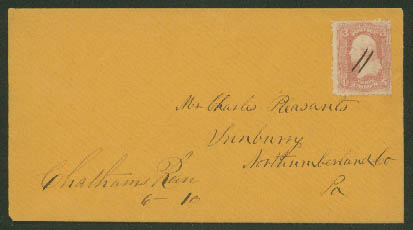 Mr Charles Pleasants
Sunbury
Northumberland Co
Pa
Chathams Run
6 - 10